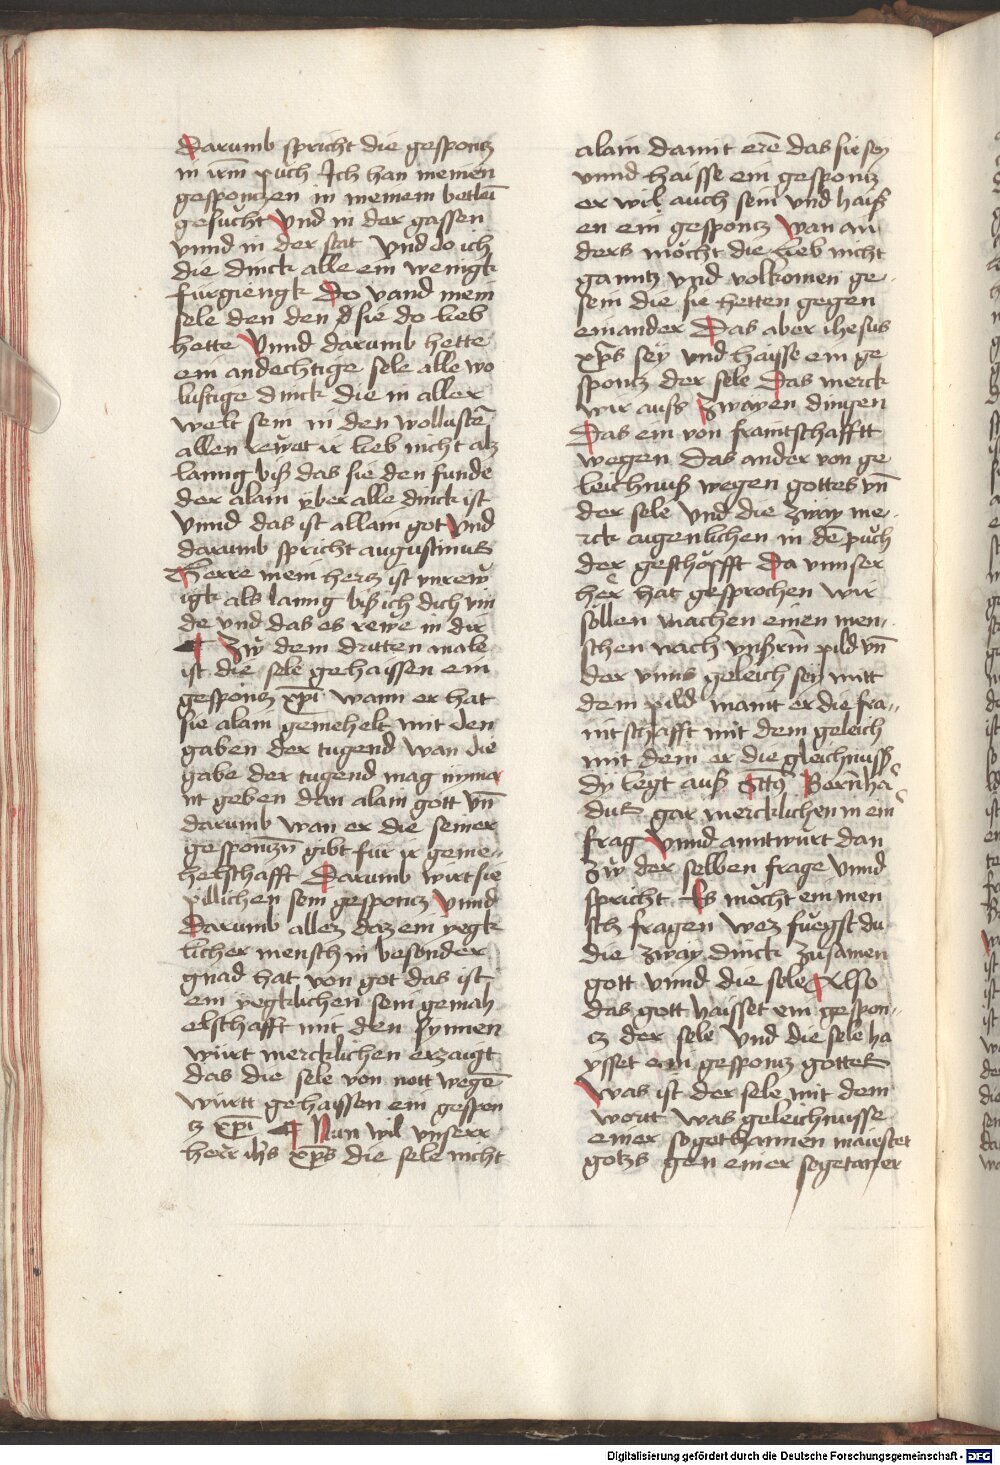 Darumb spricht die gesponcz
in irm̄ puch Ich han meinen
gesponczen in meinem betleī
gesucht Vnd in der gassen
vnnd in der stat Vnd do ich
die dinck alle ein wenigk
fürgiengk Do vand mein
sele den den d sie do lieb
hette Vnnd darumb hette
ein andechtige sele alle wo
lustige dinck die in aller
welt sein in den wollustē
allen rewet ir lieb nicht alz
lanng biß das sie den funde
der alain vber alle dinck ist
Vnnd das ist allain got Vnd
darumb spricht augustinus
Herre mein hercz ist vnrew
igk als lanng biß ich dich vin
de vnd das es rewe in dir
¶ Zw dem dritten male
ist die sele gehaissen ein
gesponcz xp̄i wann er hat
sie alain gemehelt mit den
gaben der tugend wan die
gabe der tugend mag nymā
nt geben dan alain gott vn̄
darumb wan er die seiner
gesponczn̄ gibt für ir geme-
helschafft Darumb wirt sie
pillichen sein gesponcz Vnnd
Darumb allez daz ein yegk
licher mensch in besonder
gnad hat von got das ist
ein yegklichen sein gemah
elschafft mit den synnen
würt mercklichen erzaigt
das die sele von nott wegē
württ gehaissen ein gespon
cz xp̄i ¶ Nun wil vnserr
herr ih̄s xp̄s die sele nicht
alain damit erē das sie sey
vnnd haisse ein gesponcz
er wil auch sein vnd haiß
en ein gesponcz wan an
ders mocht die lieb nicht
ganntz vnd volkomen ge-
sein die sie hetten gegen
einander Das aber ihesus
xp̄s sey vnd haysse ein ge
sponcz der sele Das merck
wir auß zwayen dingen
Das ein von frainttschafftt
wegen Das ander von ge
leichnuß wegen gottes vn̄
der sele Vnd die zway me-
rck augenlichen in dē puch
der geschöpfft Da vnnser
herr hat gesprochen wir
söllen machen einen men-
schen nach vnßrm̄ pild vn̄
der vnns geleich sey mitt
dem pild maint er die fra-
intschafft mit dem geleich
mit dem er die gleichnuß
dy legt auß Sctūs Bernhar
dus gar mercklichen in ein
frag Vnnd anntwürt dan
zw der selben frage Vnnd
spricht Es mocht ein men
sch fragen wez fuegst du
die zway dinck zusamen
gott vnnd die sele Also
das gott haisset ein gespon-
cz der sele Vnd die sele ha
ysset ein gesponcz gottes
Was ist der sele mit dem
wortt was geleichnusse
einer sogethannen maiestet
gotzs gen einer sogetaner
Digitalisierung gefördert durch die Deutsche Forschungsgemeinschaft - DFG